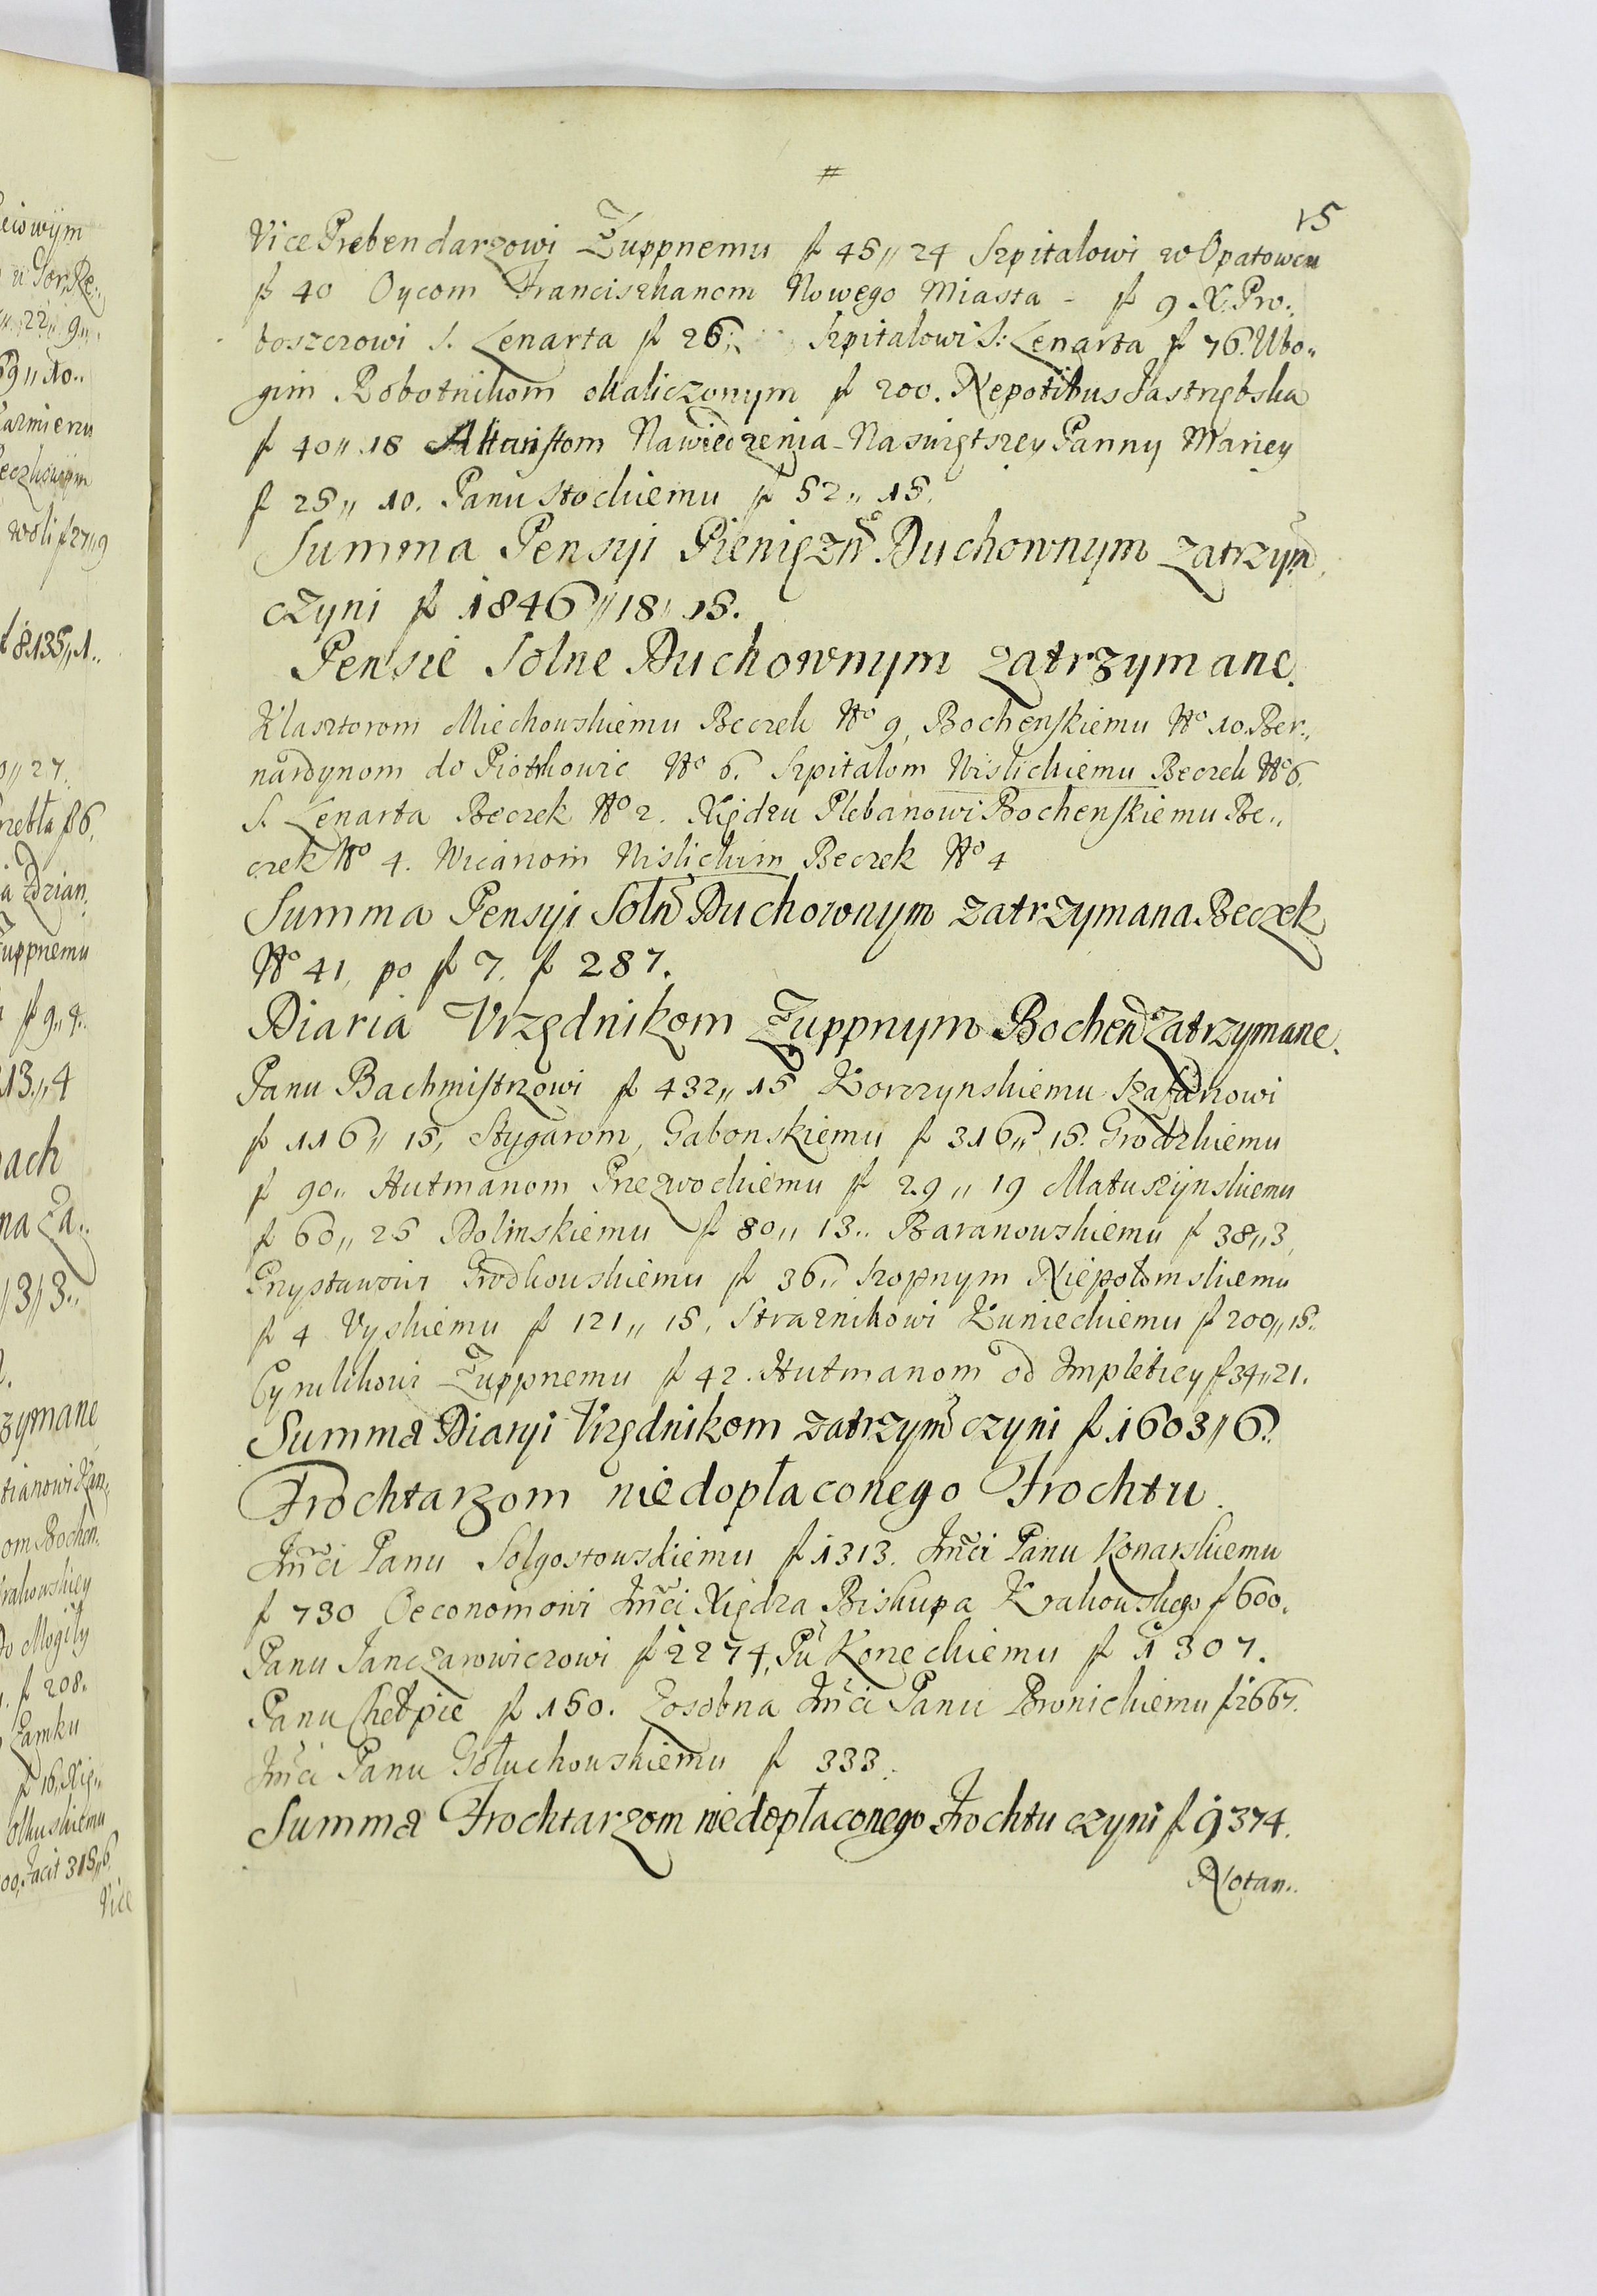 #
15
Vice Prebendarzowi Zuppnemu f 45,, 24 Szpitalowi w Opatowcu
f 40 Oycom Franciszkanom Nowego Miasta - f 9 X. Pro.,
boszczowi S. Lenarta f 26 Szpitalowi S: Lenarta f 76. Ubo,,
gim Robotnikom okaliczonym f 200. Nepotibus Jastrzębska
f 40,, 18 Altaristom Nawiedzenia Naswiętszey Panny Mariey
f 25,, 10. Panu Stockiemu f 52,, 15.
Summa Pensyi Pieniężn. Duchownym zatrzym
czyni f 1846,, 18,, 15.
Pensie Solne Duchownym zatrzymane.
Klasztorom Miechowskiemu Beczek No 9, Bochenskiemu No 10. Ber.,
nardynom do Piotrkowic No 6. Szpitalom Wislickiemu Beczek No 6.
S. Lenarta Beczek No 2. Xiędzu Plebanowi Bochenskiemu Be,,
czek No 4. Wicariom Wislickim Beczek No 4
Summa Pensyi Soln Duchownym zatrzymana Beczek
No 41, po f 7. f 287.
Diaria Vrzędnikom Zuppnym Bochen zatrzymane.
Panu Bachmistrzowi f 432,, 15 Korczynskiemu Szafarzowi
f 116,, 15, Stygarom, Gabonskiemu f 316,, 15. Grodzkiemu
f 90,, Hutmanom Przezwockiemu f 29,, 19 Matuszynskiemu
f 60,, 25 Dolinskiemu f 80,, 13,, Baranowskiemu f 38,, 3,
Przystawowi Grodkowskiemu f 36,, Szopnym Niepołomskiemu
f 4 Vyskiemu f 121,, 15, Straznikowi Kunieckiemu f 200,, 15,,
Cyrulikowi Zuppnemu f 42. Hutmanom od Impletiey f 34,, 21.
Summa Diaryi Vrzędnikom zatrzym czyni f 1603,, 6,,
Frochtarzom niedopłaconego Frochtu.
Jmći Panu Solgostowskiemu f 1313. Jmći Panu Konarskiemu
f 730 Oeconomowi Jmći Xiędza Biskupa Krakowskiego f 600.
Panu Janczarowiczowi f 2274, Pu Koneckiemu f 1307.
Panu Chełpie f 150. Zosobna Jmći Panu Bronickiemu f 2667.
Jmći Panu Gołuchowskiemu f 333.
Summa Frochtarzom niedopłaconego Frochtu czyni f 9374.
Notan,,